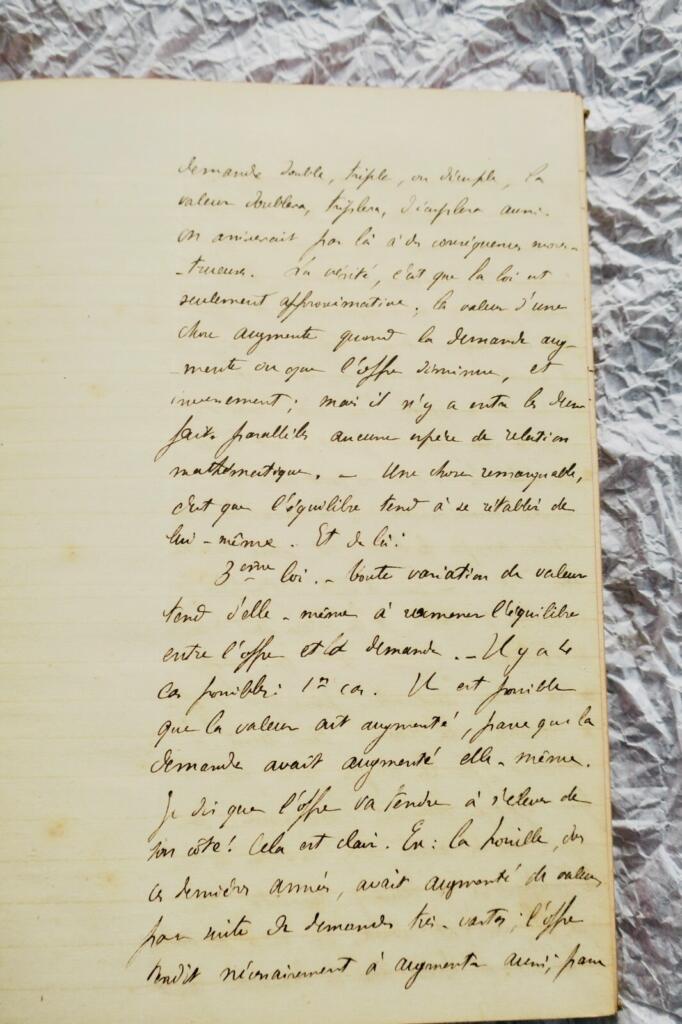 demande double, triple, ou décuple, la
valeur doublera, triplera, décuplera aussi.
On arriverait par là à des conséquences mons-
-trueuses. La vérité, c'est que la loi est
seulement approximative ; la valeur d'une
chose augmente quand la demande aug-
mente ou que l'offre diminue, et
inversement ; mais il n'y a entre les deux
faits parallèles aucune espèce de relation
mathématique. — Une chose remarquable,
c'est que l'équilibre tend à se rétablir de
lui-même. Et de là :
3ème loi. — Toute variation de valeur
tend d'elle-même à ramener l'équilibre
entre l'offre et la demande. — Il y a 4
cas possibles : 1er cas. Il est possible
que la valeur ait augmenté, parce que la
demande avait augmenté elle-même.
Je dis que l'offre va tendre à s'élever de
son côté ! Cela est clair. Ex : la houille,
ces dernières années, avait augmenté de valeur
par suite de demandes très-vastes ; l'offre
tendit nécessairement à augmenter aussi, parce